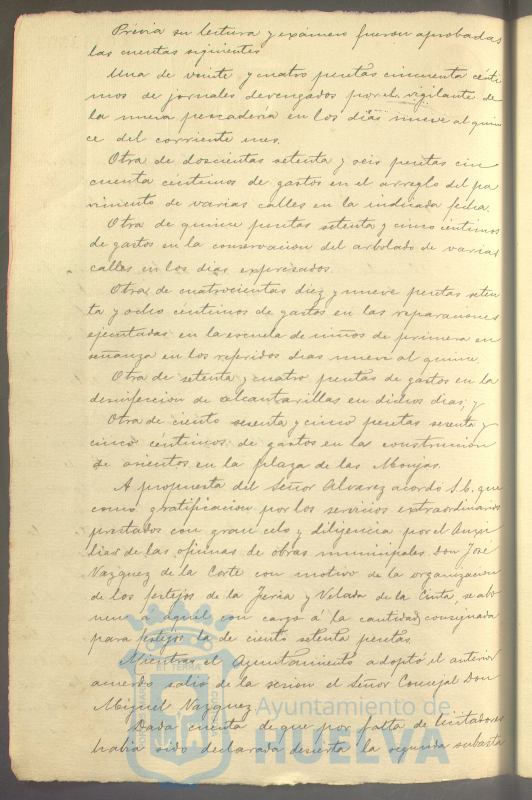 Prévia su lectura y exámen fueron aprobadas
las cuentas siguientes
Una de veinte y cuatro pesetas cincuenta cénti
mos de jornales devengados por el vigilante de
la nueva pescadería en los dias nueve al quin
ce del corriente mes.
Otra de doscientas setenta y seis pesetas cin
cuenta céntimos de gastos en el arreglo del pa
vimento de varias calles en la indicada fecha.
Otra de quince pesetas setenta y cinco céntimos
de gastos en la conservacion del arbolado de varias
calles en los dias expresados.
Otra de cuatrocientas diez y nueve pesetas seten
ta y ocho céntimos de gastos en las reparaciones
ejecutadas en la escuela de niños de primera en
señanza en los referidos dias nueve al quince.
Otra de setenta y cuatro pesetas de gastos en la
desinfeccion de alcantarillas en dichos dias; y
Otra de ciento sesenta y cinco pesetas sesenta y
cinco céntimos de gastos en la construccion
de asientos en la plaza de las Monjas.
A propuesta del Señor Alvarez acordó S.E. que
como gratificacion por los servicios extraordinarios
prestados con gran celo y diligencia por el Auxi
liar de las oficinas de obras municipales Don José
Vazquez de la Corte con motivo de la organizacion
de los festejos de la Feria y Velada de la Cinta, se abo
nen á aquel con cargo á la cantidad consignada
para festejos la de ciento setenta pesetas.
Mientras el Ayuntamiento adoptó el anterior
acuerdo salió de la sesion el Señor Concejal Don
Miguel Vazquez
Dada cuenta de que por falta de licitadores
habia sido declarada desierta la segunda subasta
Ayuntamiento de
HUELVA